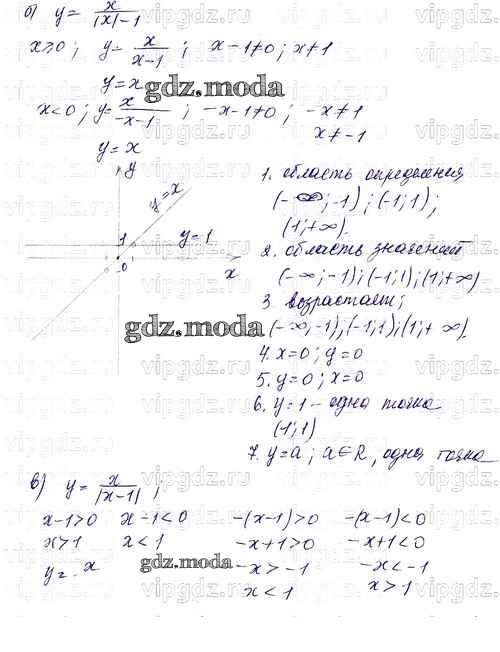 б) y = x/|x|-1
x≥0 ; y = x/x-1 ; x-1≠0 ; x≠1
y = x
x<0 ; y = x/-x-1 ; -x-1≠0 ; -x≠1
x≠-1
y = x
y
y = x
1
y = 1
0
x
1. область определения
(-∞; -1) ; (-1; 1) ;
(1; +∞).
2. область значений
(-∞; -1) ; (-1; 1) ; (1; +∞)
3. возрастает;
(-∞; -1) ; (-1; 1) ; (1; +∞).
4. x=0 ; y=0
5. y=0 ; x=0
6. y=1 - одна точка
(1; 1)
7. y=a ; a∈R, одна точка
в) y = x/|x-1| ;
x-1>0 x-1<0 -(x-1)>0 -(x-1)<0
x>1 x<1 -x+1>0 -x+1<0
y = x -x>-1 -x<-1
x<1 x>1
gdz.moda
gdz.moda
gdz.moda
vipgdz.ru